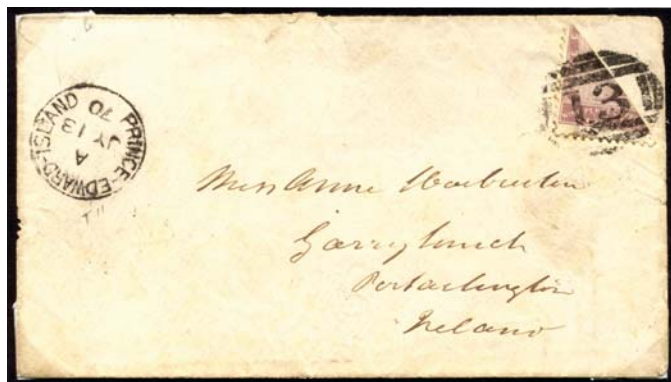 PRINCE-EDWARD-ISLAND
A
JY 13
70
13
Miss Anne Warburton
Garryhinch
Portarlington
Ireland